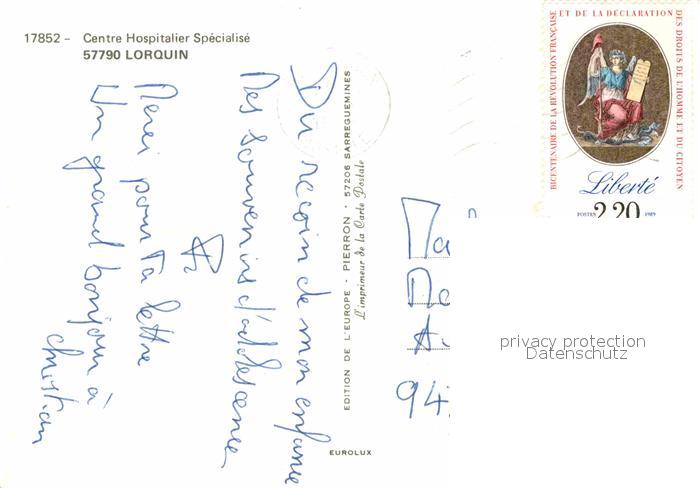 17852 - Centre Hospitalier Spécialisé
57790 LORQUIN
Du recoin de mon enfance
Des souvenirs d'adolescence
Merci pour ta lettre
Un grand bonjour à
Christian
EDITION DE L'EUROPE · PIERRON · 57206 SARREGUEMINES
L'imprimeur de la Carte Postale
EUROLUX
BICENTENAIRE DE LA RÉVOLUTION FRANÇAISE ET DE LA DÉCLARATION DES DROITS DE L'HOMME ET DU CITOYEN
Liberté
POSTES 2,20 1989
94
privacy protection
Datenschutz